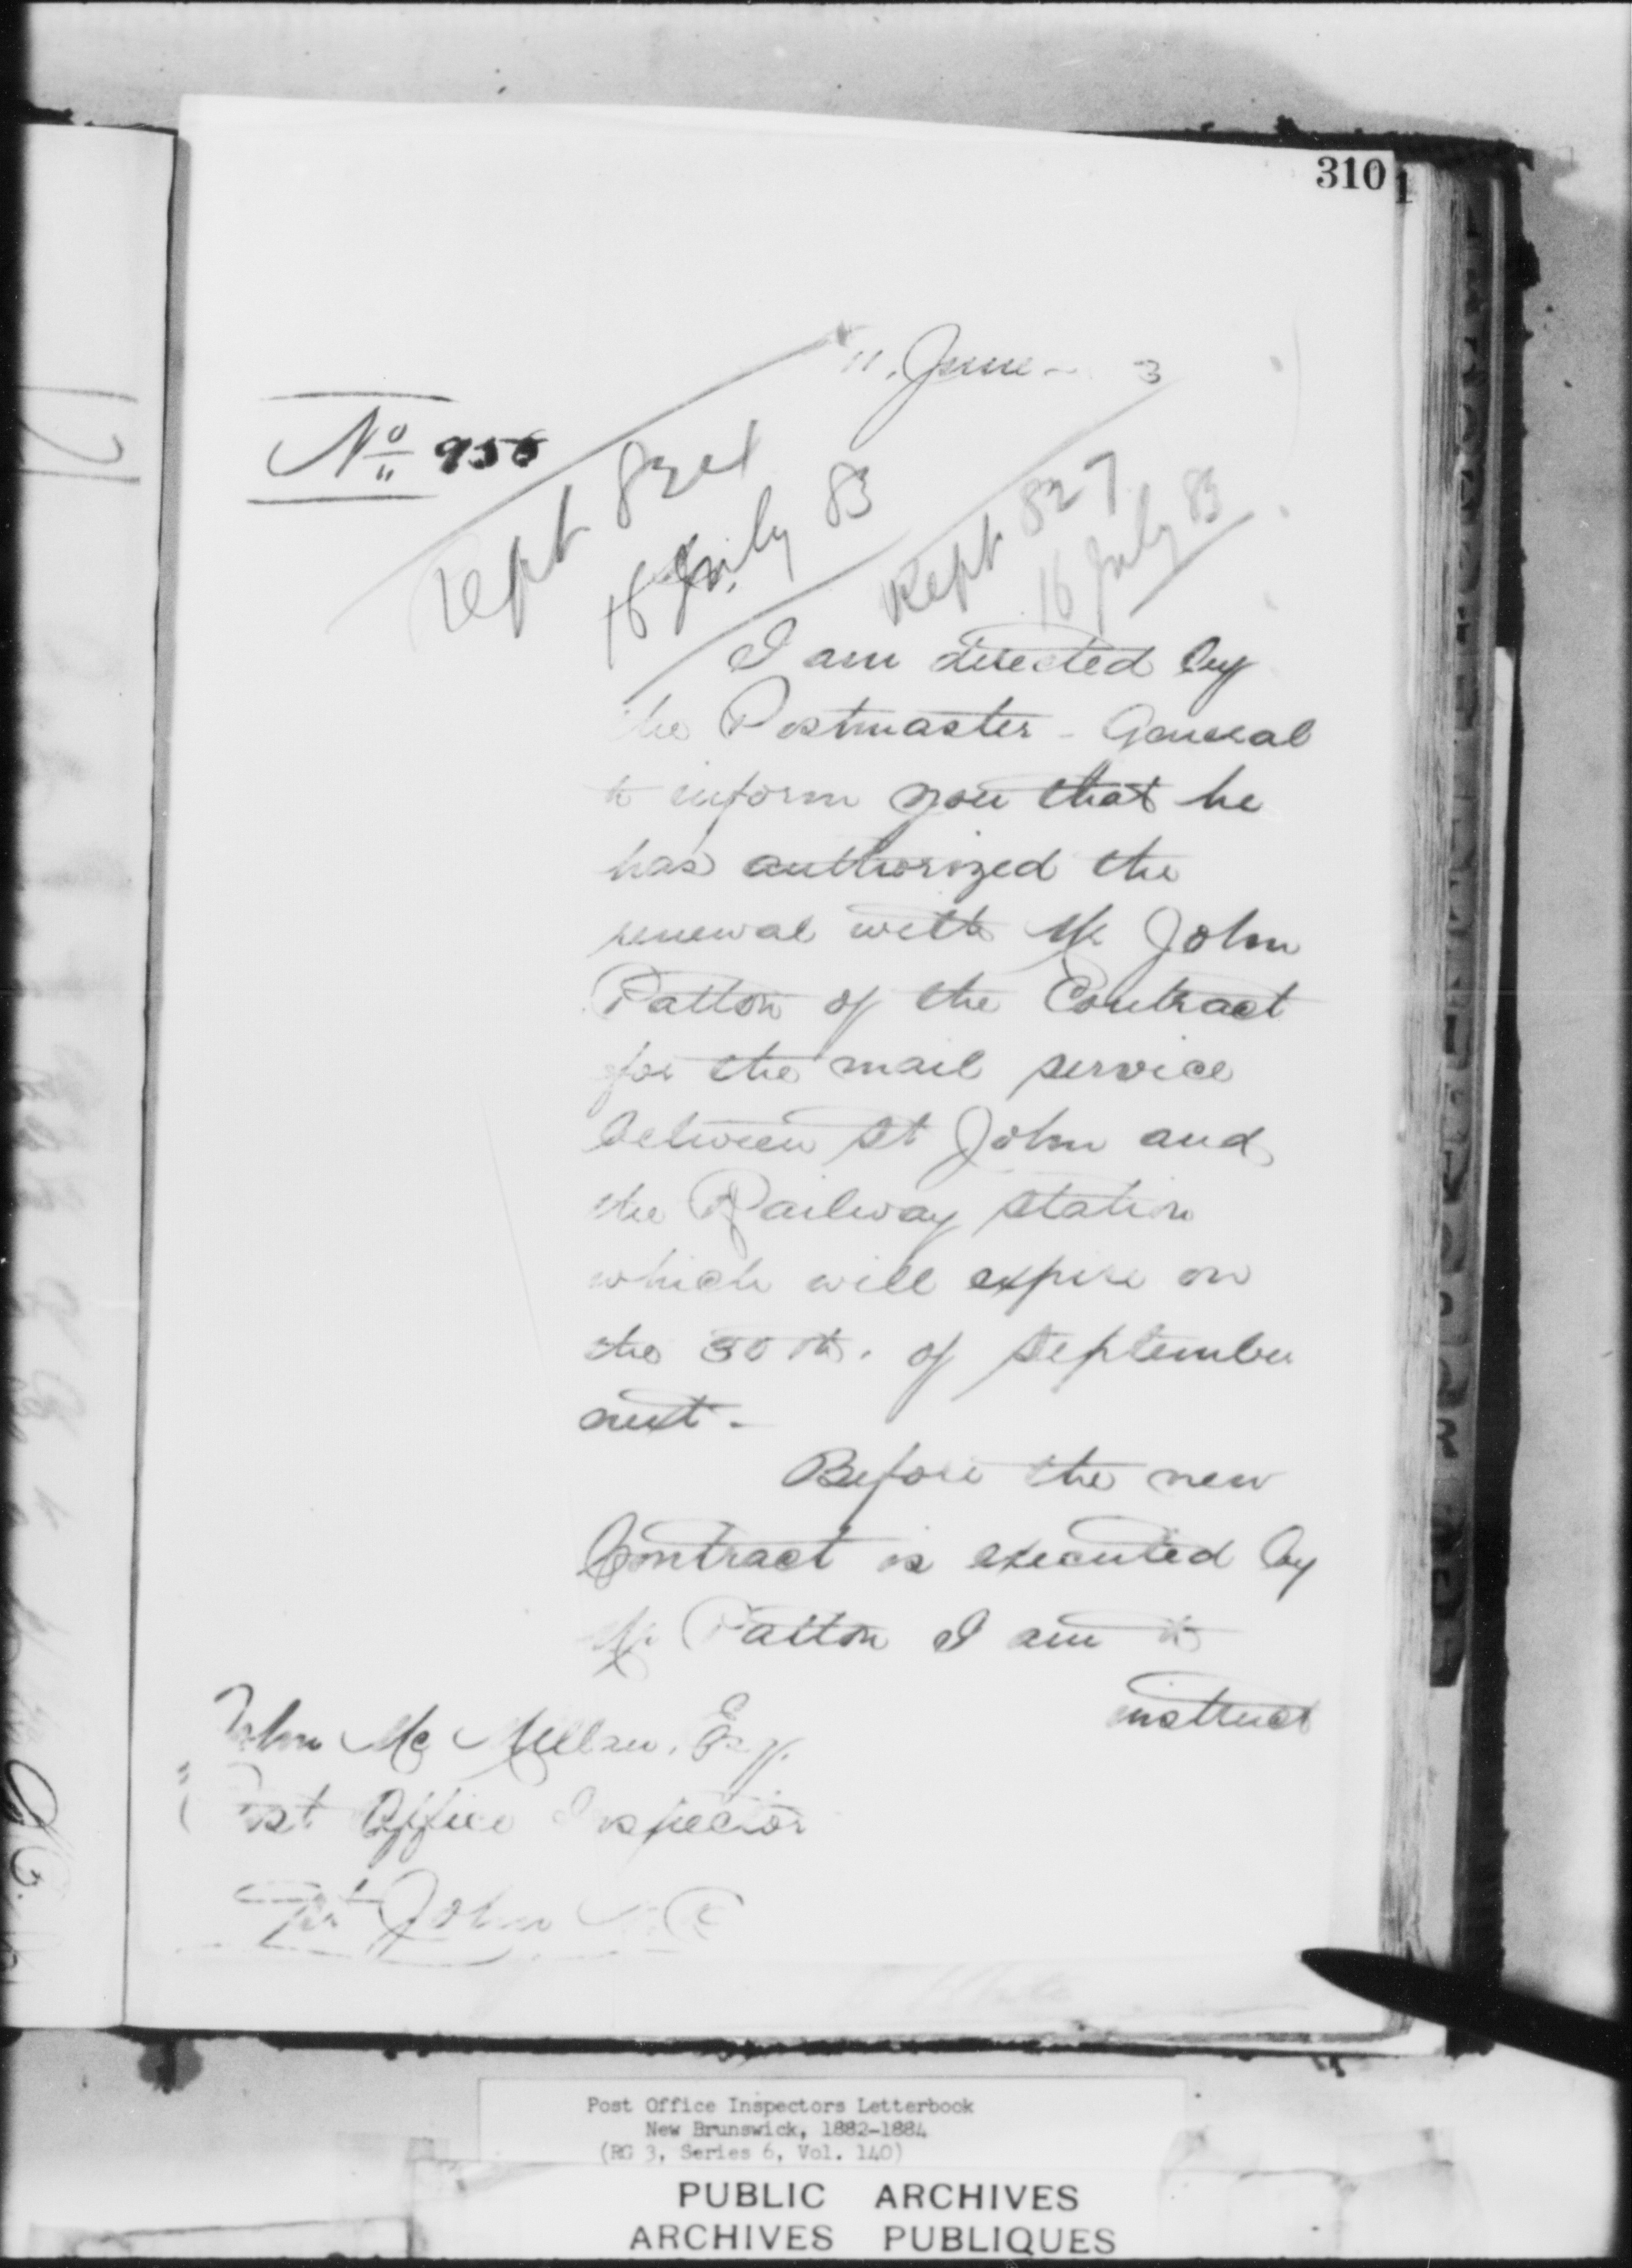 310
11. June - 3
No 956
Rept 824
16 July 83
Rept 827
16 July 83
I am directed by
the Postmaster - General
to inform you that he
has authorized the
renewal with Mr John
Patton of the Contract
for the mail service
between St John and
the Railway Station
which will expire on
the 30th. of September
next -
Before the new
Contract is executed by
Mr Patton I am to
instruct
John Mc Millan, Esq.
Post Office Inspector
St John N.B
Post Office Inspectors Letterbook
New Brunswick, 1882-1884
(RG 3, Series 6, Vol. 140)
PUBLIC ARCHIVES
ARCHIVES PUBLIQUES